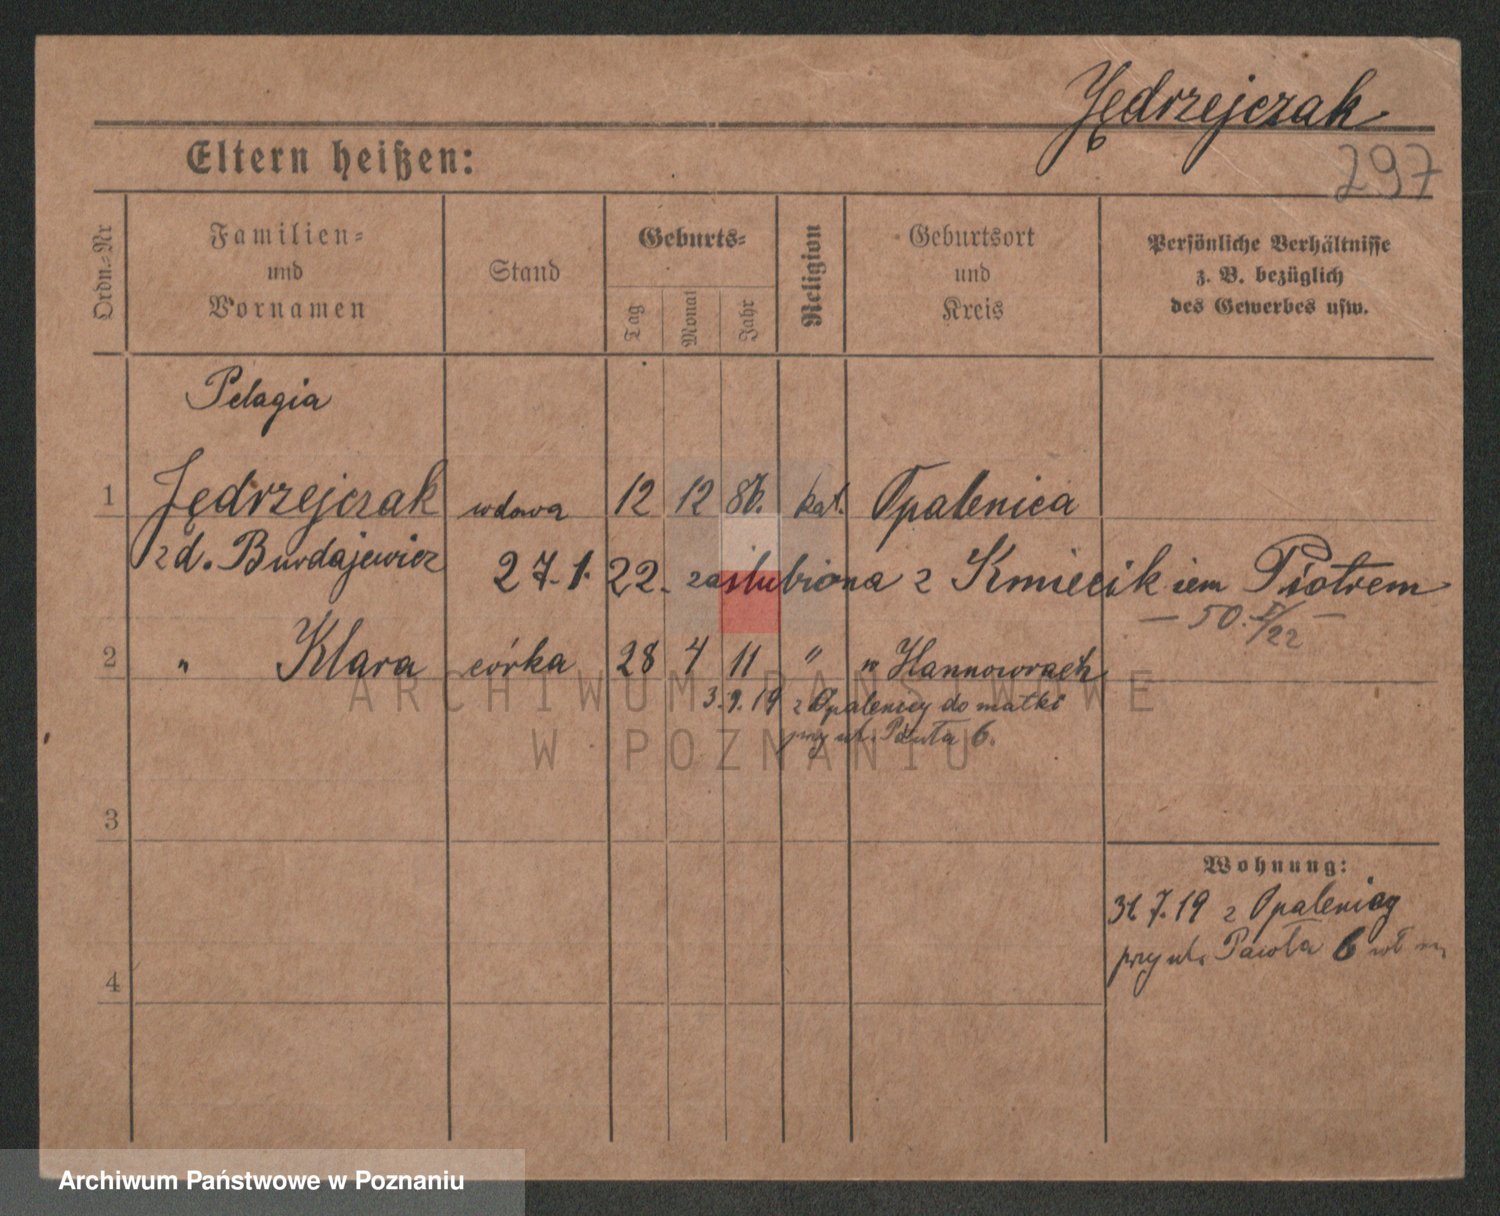 Jędrzejczak
Eltern heißen:
297
Ordn.-Nr
Familien-
und
Vornamen
Stand
Geburts-
Tag
Monat
Jahr
Religion
Geburtsort
und
Kreis
Persönliche Verhältnisse
z. B. bezüglich
des Gewerbes usw.
Pelagia
1 Jędrzejczak wdowa 12 12 kat. Opalenica
zd. Burdajewicz
27.1.22. zaślubiona z Kmiecikiem Piotrem
— 50. I/22 —
2 " Klara córka 28 4 11 " w Hannowrach
3.9.19 z Opalenicy do matki
przy ul. Pawła 6.
3
Wohnung:
31.7.19 z Opalenicy
przy ul. Pawła 6
4
ARCHIWUM PAŃSTWOWE
W POZNANIU
Archiwum Państwowe w Poznaniu